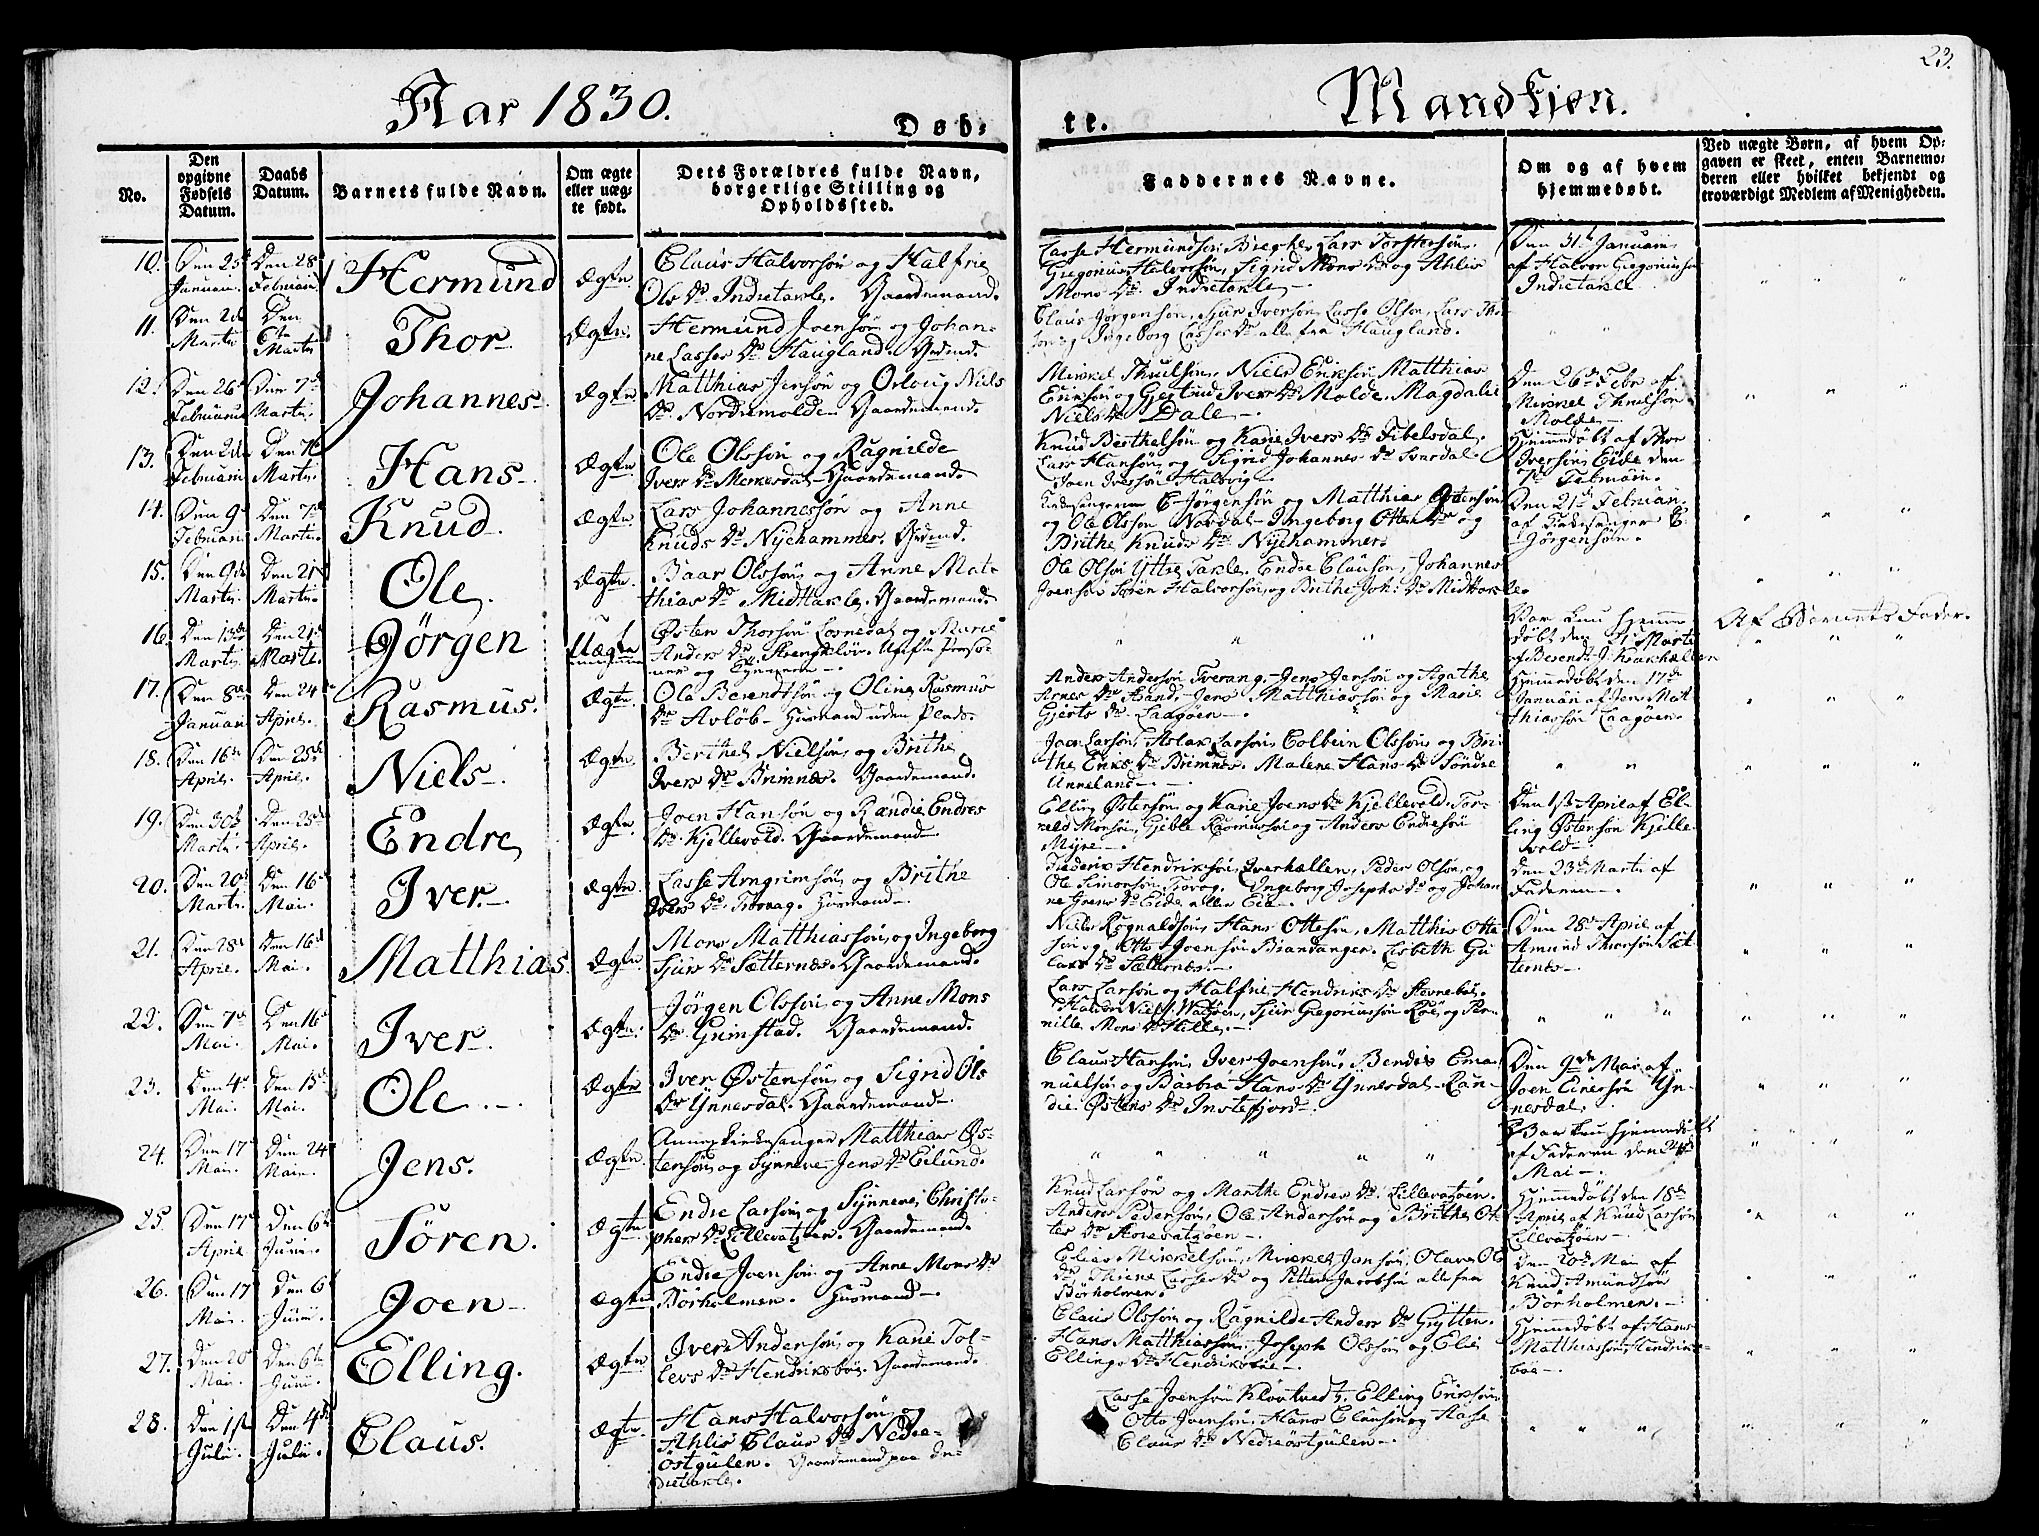 Aar 1830.
Døb-
te.
Mandkjøn.
23.
No.
Den
opgivne
Fødsels
Datum.
Daabs
Datum.
Barnets fulde Navn.
Om ægte
eller uæg-
te født.
Dets Forældres fulde Navn,
borgerlige Stilling og
Opholdssted.
Faddernes Navne.
Om og af hvem
hjemmedøbt.
Ved uægte Børn, af hvem Op-
gaven er skeet, enten Barnemo-
deren eller hvilket bekjendt og
troværdigt Medlem af Menigheden.
10.
Den 25
Januari
Den 28
Februari
Hermund
Ægte
Claus Halvorsøn og Halfrie
Ols Dr Indretakle. Gaardemand.
Lasse Hermundsøn Brekke, Lars Torstensøn,
Gregorius Halvorsøn, Sigrid Mons Dr og Ahlis
Mons Dr Indretakle.
Den 31te Januari
af Halvor Gregoriussøn
Indretakle
11.
Den 2de
Martii
Den
6te
Martii
Thor
Ægte.
Hermund Joensøn og Johan-
ne Lasses Dr Haugland. Grdmd.
Claus Jørgensøn, Siur Iversøn, Lasse Olsøn, Lars Thor
søn og Ingeborg Lasses Dr alle fra Haugland.
12.
Den 26
Februari
Den 7de
Martii.
Johannes
Ægte
Matthias Jensøn og Orloug Niels
Dr Nordremolde Gaardemand.
Mikkel Thuelsøn, Niels Eriksøn, Matthias
Eriksøn og Gjertrud Ivers Dr Molde, Magdalie
Niels Dr Dale
Den 26de Febr af
Mikkel Thuelsøn
Molde
13.
Den 2de
Februari
Den 7de
Martii.
Hans
Ægte
Ole Olssøn og Ragnilde
Ivers Dr Merkesdal Gaardemand
Knud Berthelsøn og Karie Ivers Dr Tibelsdal,
Lars Hansøn og Sigrid Johannes Dr Svardal.
Joen Iversøn Halsvig
Hjemmedøbt af Thor
Iversøn Eide den
7de Februari.
14.
Den 9
Februari
Den 7de
Martii.
Knud
Ægte.
Lars Johannessøn og Anne
Knuds Dr Nyehammer. Grdmd.
Kirkesangeren E. Jørgensøn og Matthias Østensøn
og Ole Olssøn Nordal Ingeborg Otter Dr og
Brithe Knuds Dr Nyehammer.
Den 21de Februari
af Kirkesanger E.
Jørgensøn.
15.
Den 9de
Martii.
Den 21
Martii.
Ole
Ægte.
Baar Olssøn og Anne Mat-
thias Dr Midttakle. Gaardemand.
Ole Olsøn Yttre Takle. Endre Clausøn, Johannes
Joensøn Søren Halvorsøn og Brithe Joh: Dr Midttakle.
16.
Den 13de
Martii
Den 21
Martii.
Jørgen
Uægte
Østen Thorsøn Losnedal og Marie
Anders Dr
Var kun hjemme
døbt den 21 Martii
af Berendt J. Krakhellen
Af Barnets Fader.
17.
Den 8de
Januari
Den 24
April.
Rasmus.
Ægte.
Ole Berendtsøn og Oline Rasmus
Dr Avløb Huusmand uden Plads.
Anders Andersøn Tverang. Jens Jensøn og Agathe
Arnes Dr Strand. Jens Matthiassøn og Marie
Gjerts Dr Laagøen.
Hjemmedøbt den 17de
Januari af Jens Mat
thiassøn Laagøen.
18.
Den 16de
April.
Den 25de
April.
Niels.
Ægte
Berthel Nielsøn og Brithe
Ivers Dr Brimnes. Gaardemand.
Joen Larsøn, Aslak Larsøn, Colbein Olssøn og Bri
the Eriks Dr Brimnes. Malene Hans Dr Søndre
Unneland
19.
Den 30te
Martii.
Den 25de
April.
Endre
Ægte.
Joen Hansøn og Rændie Endres
Dr Kjellevold. Gaardemand
Elling Østensøn og Karie Joens Dr Kjellevold. Tor-
reld Monsøn, Gjeble Rasmussøn og Anders Endresøn
Myre
Den 1ste April af El-
ling Østensøn Kjelle
vold
20.
Den 20
Martii.
Den 16
Mai.
Iver.
Ægte.
Lasse Arngrimsøn og Brithe
Dr Tvrag. Huusmand
Diderik Hendriksøn, Peder Olsøn, og
Ole Simonsøn. Ingeborg Josephs Dr og Johan
Den 23de Martii af
Faderen
21.
Den 28
April.
Den 16de
Mai.
Matthias
Ægte.
Mons Matthiassøn og Ingeborg
Siurs Dr Sætternes. Gaardemand.
Niels Rognaldsøn, Hans Ottesøn, Matthis Otte
søn og Otto Joensøn Brandanger. Lisbeth Gu
Dr Sætternes.
Den 28 April af
Amund Thorsøn Sæt
ternes
22.
Den 7de
Mai.
Den 16
Mai.
Iver.
Ægte.
Jørgen Olssøn og Anne Mons
Dr Grimstad. Gaardemand.
Lars Larsøn og Halfrie Hendriks Dr Stevnebøe,
Halvor Niels: Watøen, Siur Gregoriussøn Røe, og Per-
nille Mons Dr Hille.
23.
Den 4de
Mai.
Den 15de
Mai.
Ole.
Ægte
Iver Østensøn og Sigrid Ols
Dr Ynnesdal. Gaardemand
Claus Hansøn, Iver Joensøn, Bendix Ema
nuelsøn og Barbra Hans Dr Ynnesdal. Ran-
die Østens Dr Instefjord
Den 9de Mai af
Joen Einersøn Yn
nesdal
24.
Den 17
Mai.
Den 24
Mai.
Jens.
Ægte.
Kirkesanger Matthias Øs-
tensøn og Synneve Jens Dr Eilund.
Var kun hjemmedøbt
af Faderen den 24de
Mai.
25.
Den 17de
April
Den 6te
Junii.
Søren.
Ægte.
Endre Larsøn og Synneve Christo-
phers Dr Lillevatzøen. Gaardemand.
Knud Larsøn og Marthe Endres Dr Lillevatzøen.
Anders Pedersøn, Ole Andersøn og Brithe Ot
tes Dr Storevatzøen
Hjemmedøbt den 18de
April af Knud Larsøn
Lillevatzøen
26.
Den 17
Mai.
Den 6
Junii.
Joen
Ægte
Endre Joensøn og Anne Mons Dr
Børholmen. Huusmand
Elias Mikkelsøn, Mikkel Jansøn, Olava Ols
Dr, Thrine Lasses Dr og Petter Jacobsøn alle fra
Børholmen.
Den 20de Mai af
Knud Amundsøn
Børholmen.
27.
Den 20
Mai.
Den 6te
Junii.
Elling.
Ægte.
Iver Andersøn og Karie Tol-
levs Dr Hendriksbøe. Gaardemand.
Claus Olssøn og Ragnilde Anders Dr Grytten.
Hans Matthiassøn, Joseph Olssøn og Elie
Ellings Dr Hendriksbøe
Hjemmedøbt af Hans
Matthiassøn Hendriks-
bøe
28.
Den 1ste
Julii.
Den 4de
Julii.
Claus.
Ægte.
Hans Halvorsøn og
Ahlis Claus Dr Nedre-
østgulen. Gaardemand paa In-
dretakle.
Lasse Joensøn Kløvtvedt, Elling Eriksøn,
Otto Joensøn, Hans Clausøn og Aase
Claus Dr Nedreøstgulen